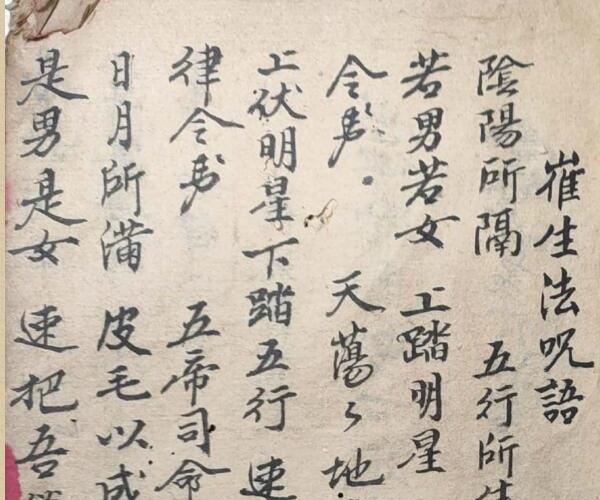 崔生法呪語
陰陽所隔 五行所
若男若女 上踏明星
令 天蕩々地
上伏明星下踏五行 速
律令 五帝司命
日月所滿 皮毛以成
是男是女 速把吾